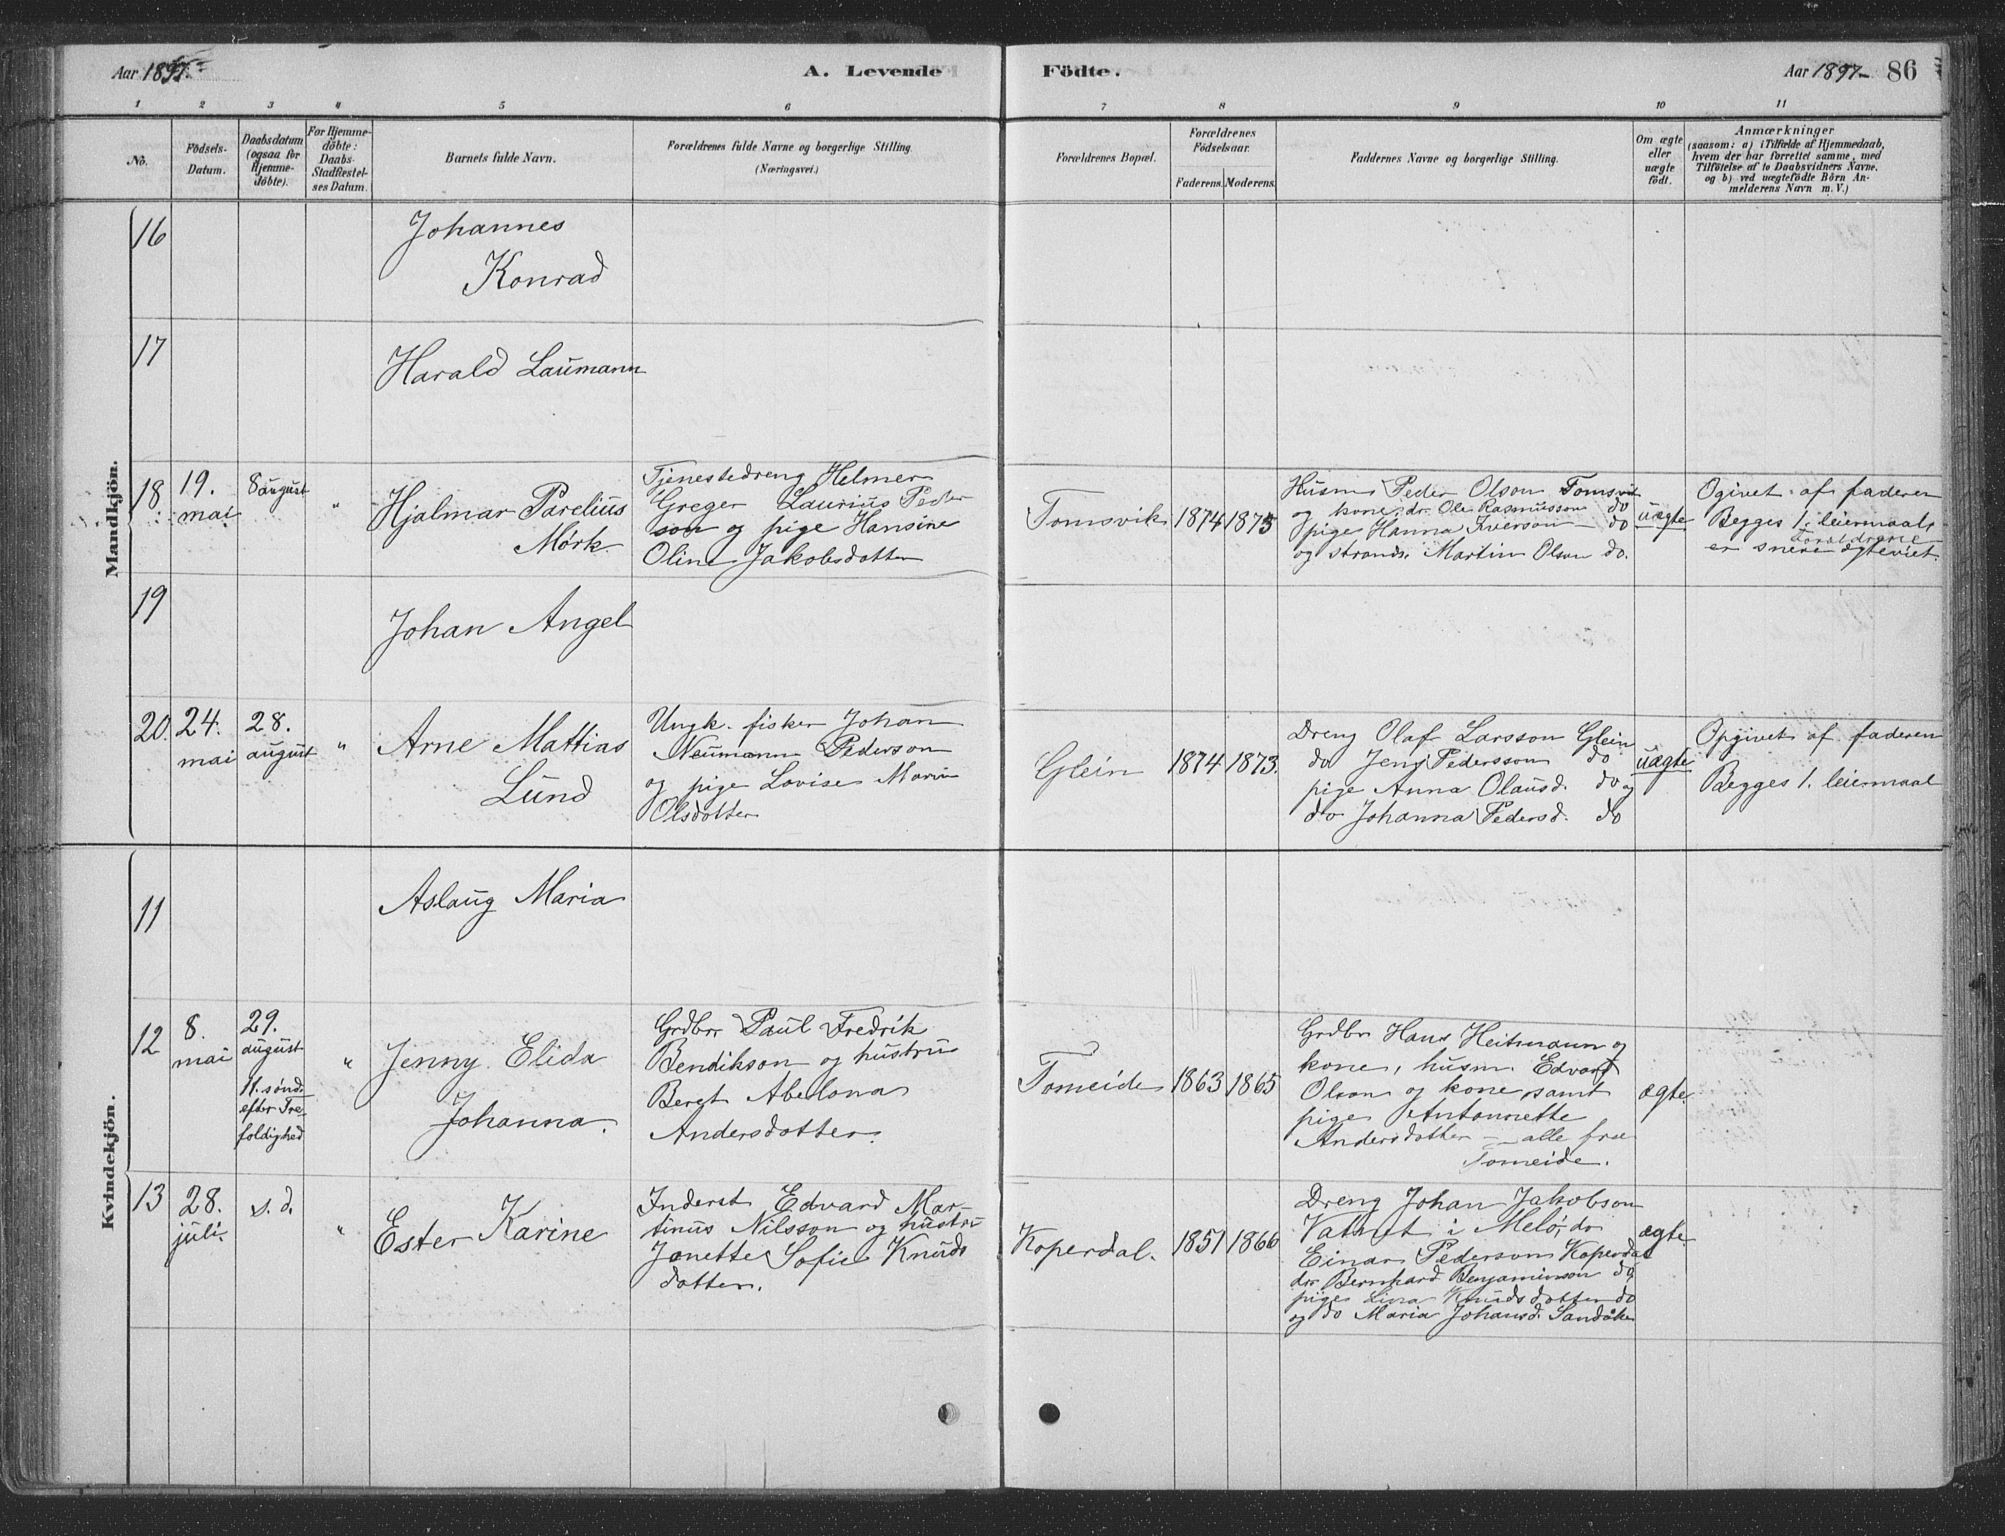 Aar 1897.
A. Levende
Födte.
Aar 1897
86
1 2 3 4 5 6 7 8 9 10 11
No.
Födsels-
Datum.
Daabsdatum
(ogsaa for
Hjemme-
döbte).
For Hjemme-
döbte:
Daabs-
Stadfæstel-
ses Datum.
Barnets fulde Navn.
Forældrenes fulde Navne og borgerlige Stilling
(Næringsvei.)
Forældrenes Bopæl.
Forældrenes
Födselsaar.
Faderens.
Moderens.
Faddernes Navne og borgerlige Stilling.
Om ægte
eller
uægte
födt.
Anmærkninger
(saasom: a) i Tilfælde af Hjemmedaab,
hvem der har forrettet samme, med
Tilföielse af to Daabsvidners Navne.
og b) ved uægtefödte Börn An-
melderens Navn m. V.)
Mandkjön.
16
Johannes
Konrad
17
Harald Laumann
18
19.
mai
8 august
"
Hjalmar Parelius
Mørk.
Tjenestedreng Helmer
Greger Laurius Peder
son og pige Hansine
Oline Jakobsdotter
Tomsvik
1874
1875
Husm Peder Olson Tomsvik
og kone, dr. Ole Rasmusson do
pige Hanna Iverson do
og strands. Martin Olson do.
uægte
Ogivet af faderen
Begges 1. leiermaal,
Foreldrene
er snere ægteviet.
19
Johan Angel
20.
24.
mai
28.
august
"
Arne Mattias
Lund
Ungk. fisker Johan
Neumann Pederson
og pige Lovise Marie
Olsdotter
Glein
1874
1873.
Dreng Olaf Larsson Glein
do Jens Pedersson do
pige Anna Olausd. do og
do Johanna Pedersd. do
uægte
Opgivet af faderen
Begges 1. leiermaal
Kvindekjön.
11
Aslaug Maria
12
8.
mai
29.
august
11. sønd.
efter Tre-
foldighed
"
Jenny Elida
Johanna.
Grdbr Paul Fredrik
Bendikson og hustru
Beret Abelona
Andersdotter.
Tomeide
1863
1865
Grdbr Hans Heitmann og
kone, husm. Edvard
Olson og kone samt
pige Antonnette
Andersdotter — alle fra
Tomeide.
ægte.
13
28.
juli.
s. d.
"
Ester Karine
Inderst Edvard Mar-
tinus Nilsson og hustru
Janette Sofie Knuds
dotter.
Koperdal.
1851
1866
Dreng Johan Jakobson
Vatnet i Melö, do
Einar Pederson Koperdal
dr. Bernhard Benjaminson do
pige Lina Knudsdotter do
og do Maria Johansd. Sandåker
ægte.